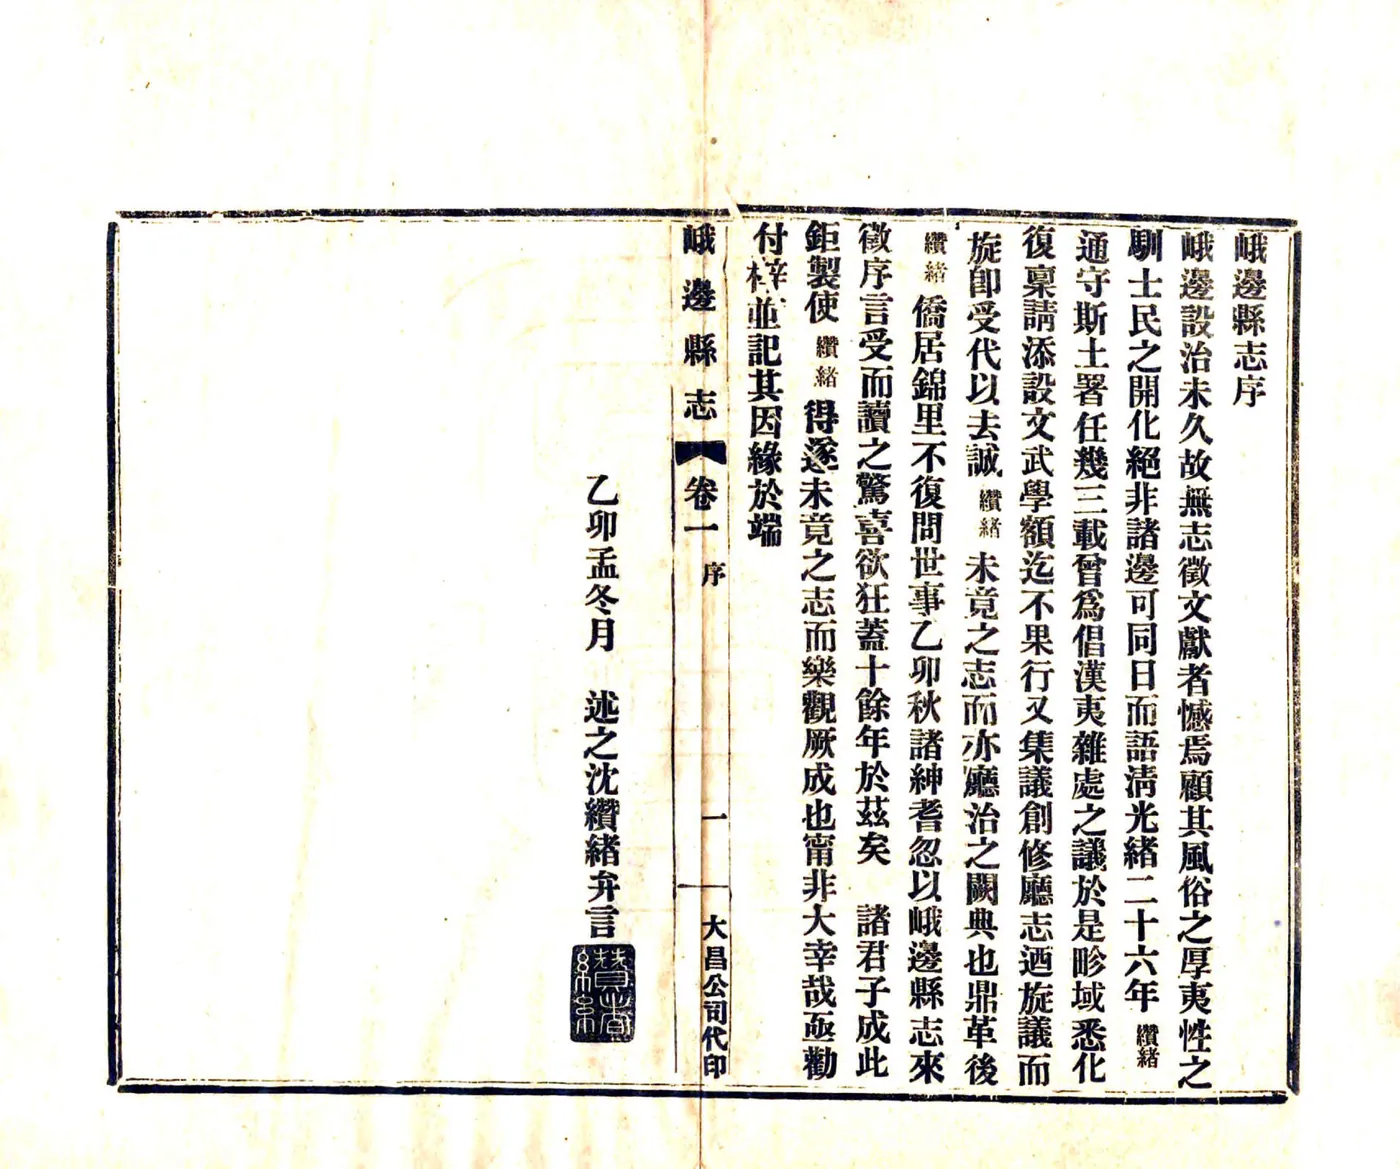 峨邊縣志序
峨邊設治未久故無志徵文獻者憾焉顧其風俗之厚夷性之
馴士民之開化絕非諸邊可同日而語淸光緒二十六年纘緒
通守斯土署任幾三載曾爲倡漢夷雜處之議於是畛域悉化
復稟請添設文武學額迄不果行又集議創修廳志迺旋議而
旋卽受代以去誠纘緒未竟之志而亦廳治之闕典也鼎革後
纘緒僑居錦里不復問世事乙卯秋諸紳耆忽以峨邊縣志來
徵序言受而讀之驚喜欲狂蓋十餘年於茲矣 諸君子成此
鉅製使纘緒得遂未竟之志而樂觀厥成也甯非大幸哉亟勸
付梓並記其因緣於端
峨邊縣志 卷一 序 一 大昌公司代印
乙卯孟冬月 述之沈纘緒弁言
纘緒